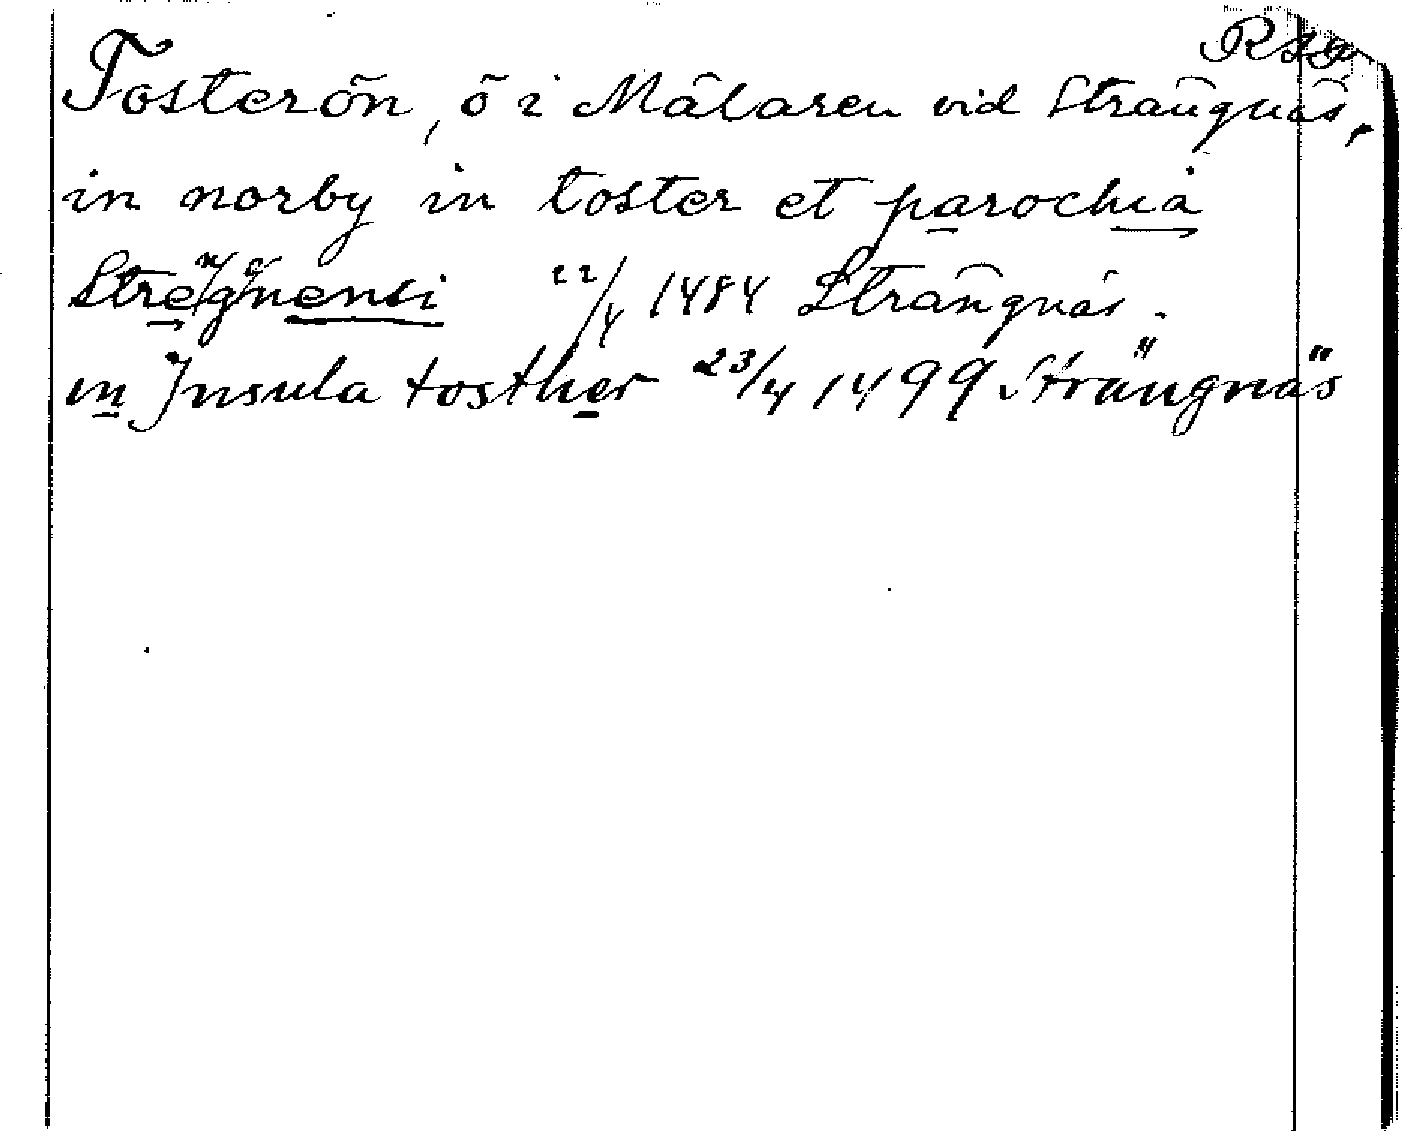 Tosterön, ö i Mälaren vid Strängnäs,
in norby in toster et parochia
Strengnensi 22/4 1484 Strängnäs.
in Jnsula tosther 23/4 1499 Strängnäs